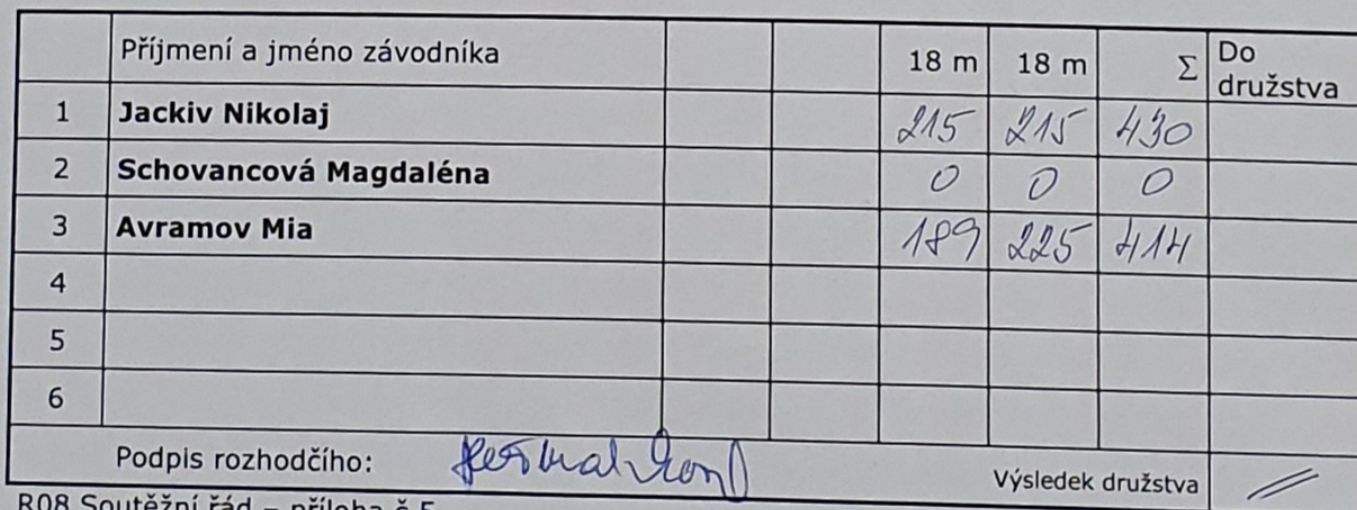 Příjmení a jméno závodníka 18 m 18 m Σ Do družstva
1 Jackiv Nikolaj 215 215 430
2 Schovancová Magdaléna 0 0 0
3 Avramov Mia 189 225 414
4
5
6
Podpis rozhodčího: Výsledek družstva
R08 Soutěžní řád – příloha č.5